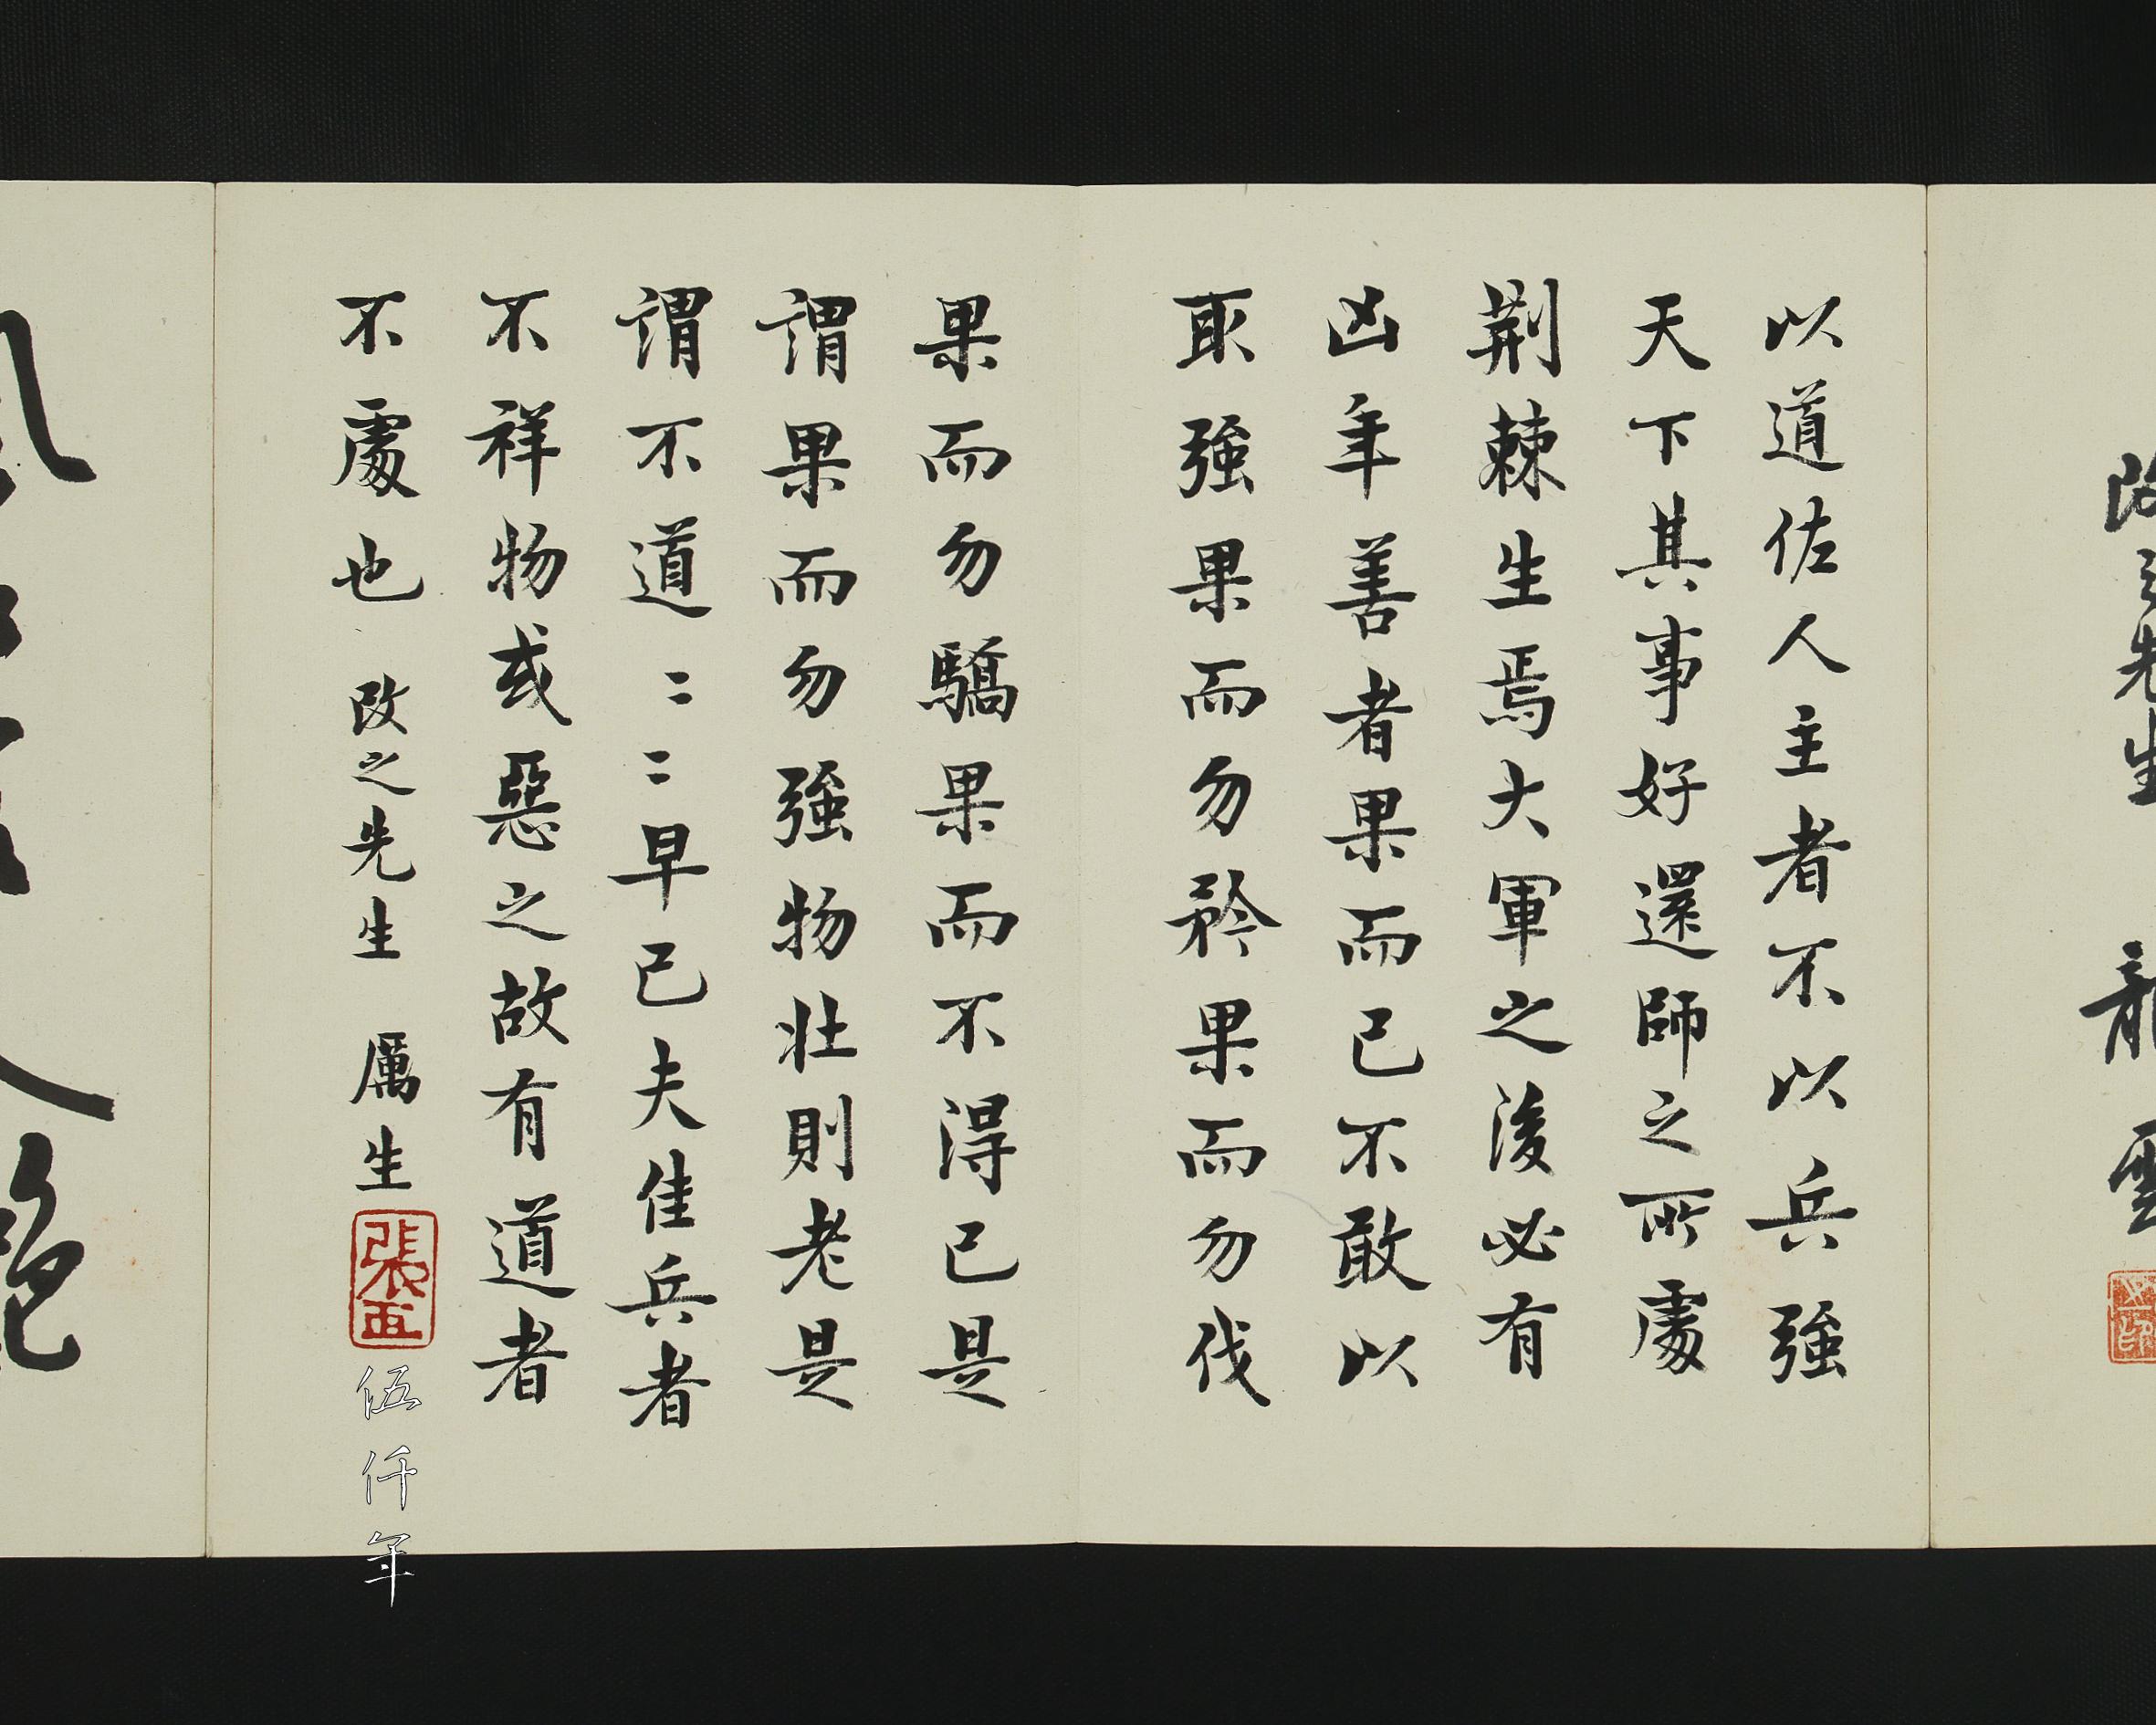 先生
以道佐人主者不以兵強
天下其事好還師之所處
荆棘生焉大軍之後必有
凶年善者果而已不敢以
取強果而勿矜果而勿伐
果而勿驕果而不得已是
謂果而勿強物壯則老是
謂不道〻〻早已夫隹兵者
不祥物或惡之故有道者
不處也 改之先生 厲生
伍仟年